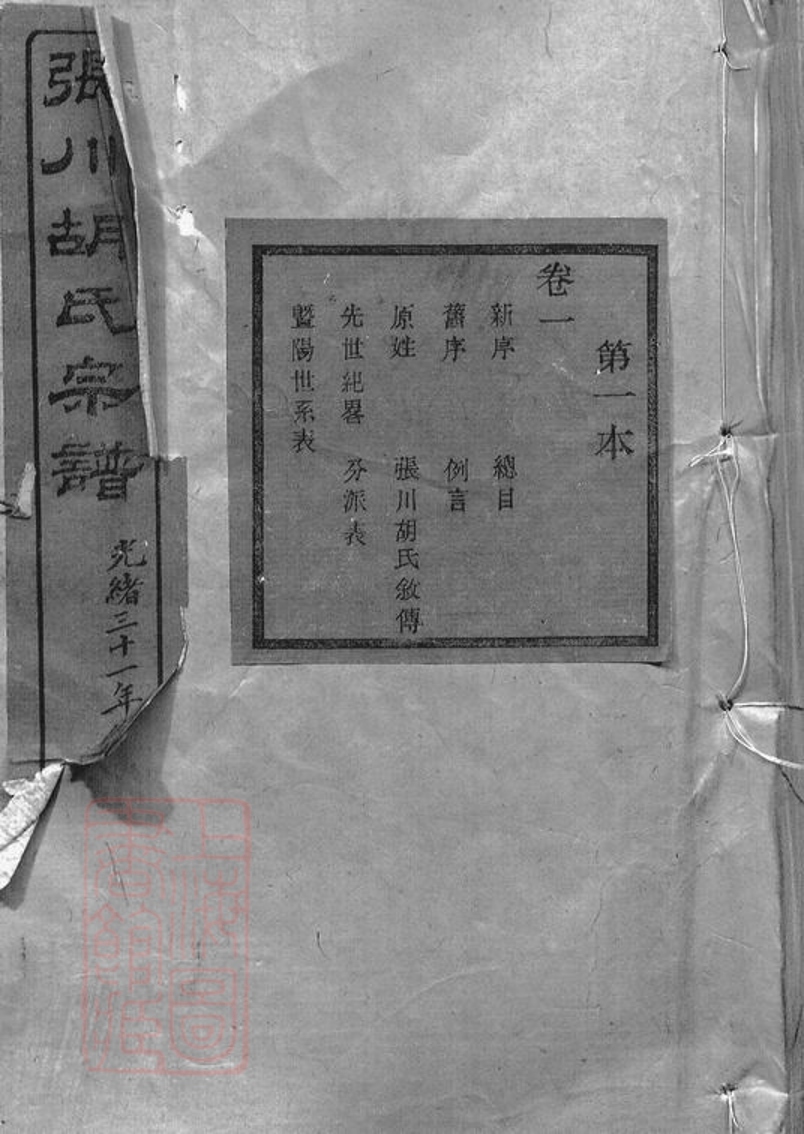 張川胡氏宗譜
光緒三十一年
第一本
卷一
新序 總目
舊序 例言
原姓 張川胡氏敘傳
先世紀畧 分派表
暨陽世系表
上海圖書館藏